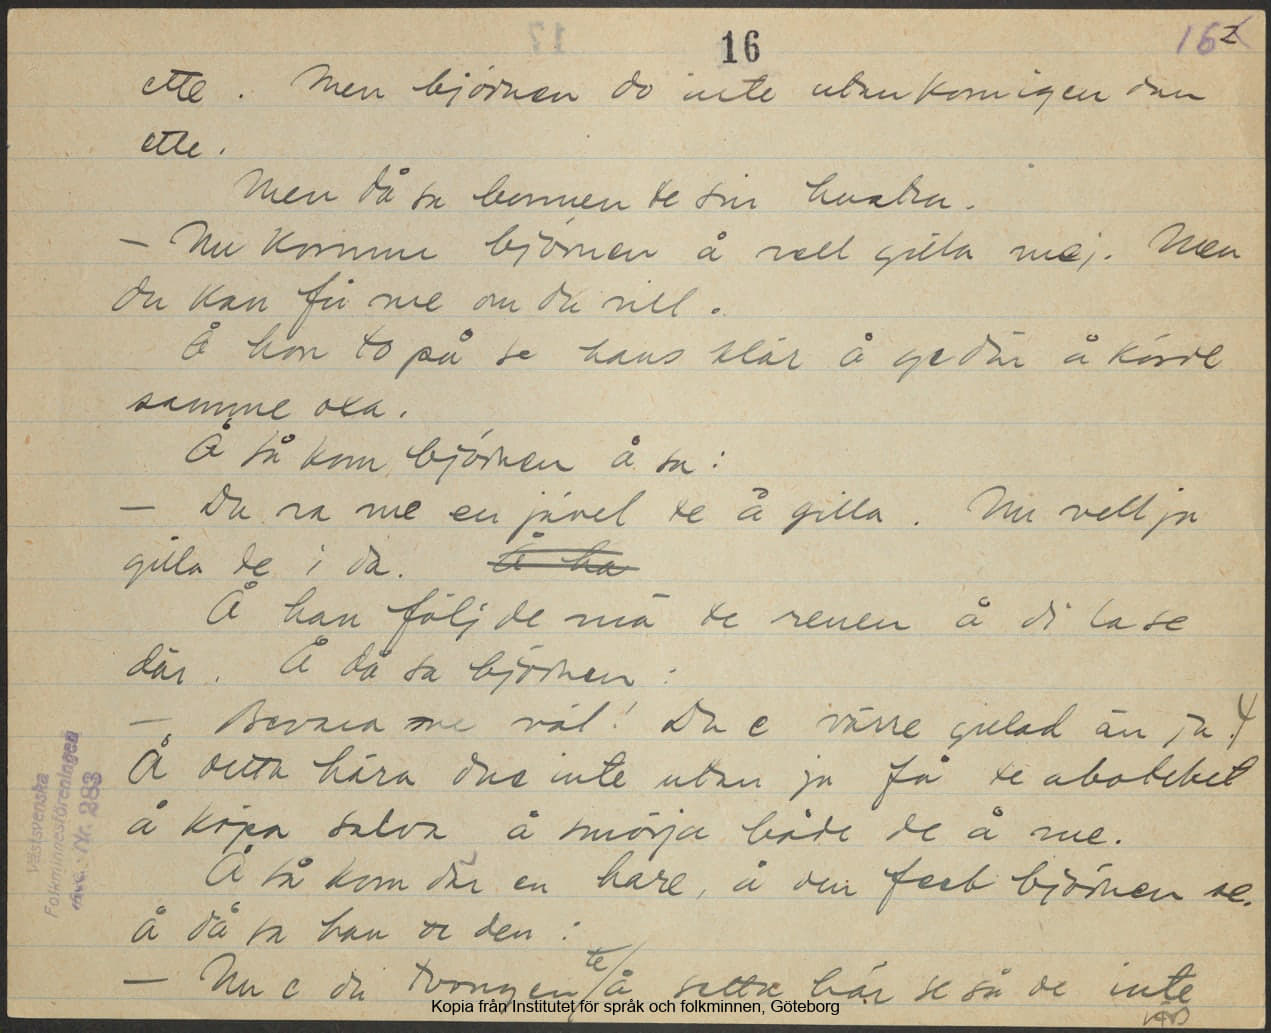 16
162
ette. Men björnen do inte utan kom igen dan
ette.
Men då sa bonnen te sin hustru.
— Nu kommer björnen å vell gilla mej. Men
du kan få me om du vill.
Å hon to på se hans klär å ge där å körde
samme oxa.
Å så kom björnen å sa:
— Du va me en jävel te å gilla. Nu vell ja
gilla de i da. Å ha
Å han följde mä te renen å di la se
där. Å då sa björnen:
— Bevara me väl! Du e värre gillad än ja!
Å detta hära due inte utan ja få te abotebet
å köpa salva å smörja både de å me.
Å så kom där en hare, å den feck björnen se.
Å då sa han te den:
— Nu e du tvongen te å setta här se så de inte
Västsvenska
Folkminnesföreningen
Inv. Nr. 283
Kopia från Institutet för språk och folkminnen, Göteborg